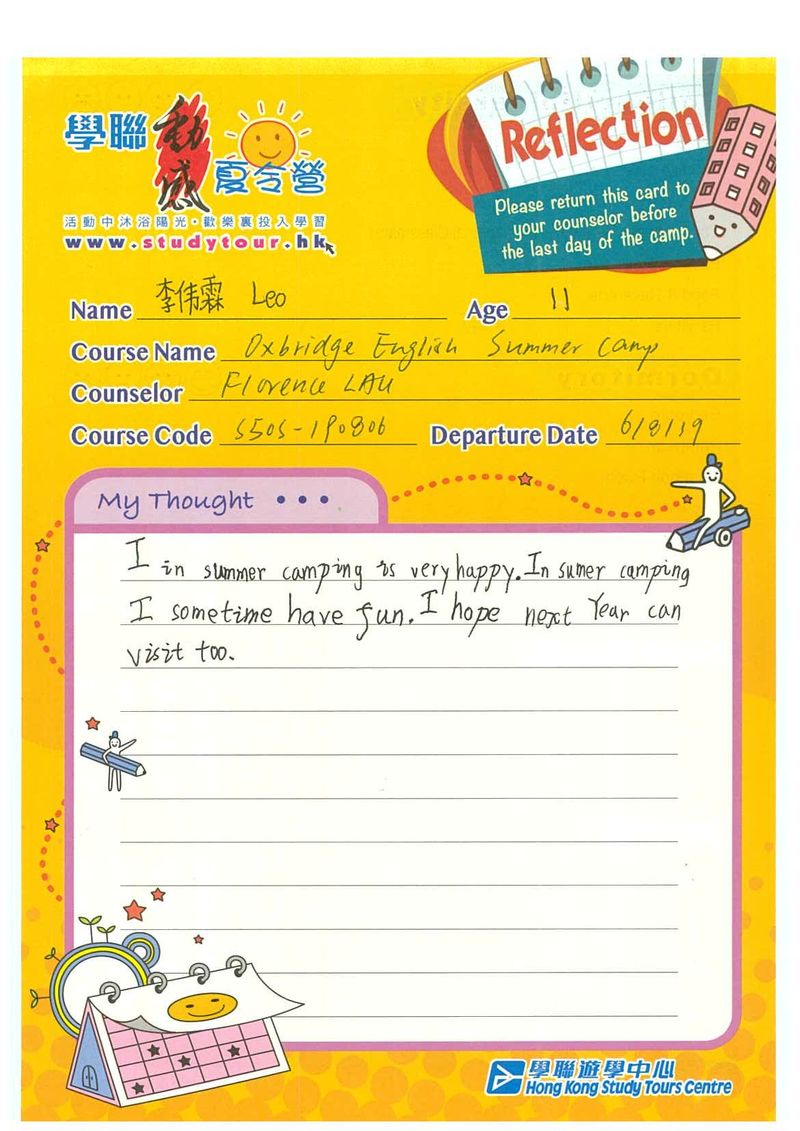 學聯動感夏令營
活動中沐浴陽光·歡樂裏投入學習
www.studytour.hk
Reflection
Please return this card to
your counselor before
the last day of the camp.
Name 李伟霖 Leo Age 11
Course Name Oxbridge English Summer Camp
Counselor Florence LAU
Course Code S50S-190806 Departure Date 6/8/19
My Thought • • •
I in summer camping is very happy. In sumer camping
I sometime have fun. I hope next Year can
visit too.
學聯遊學中心
Hong Kong Study Tours Centre